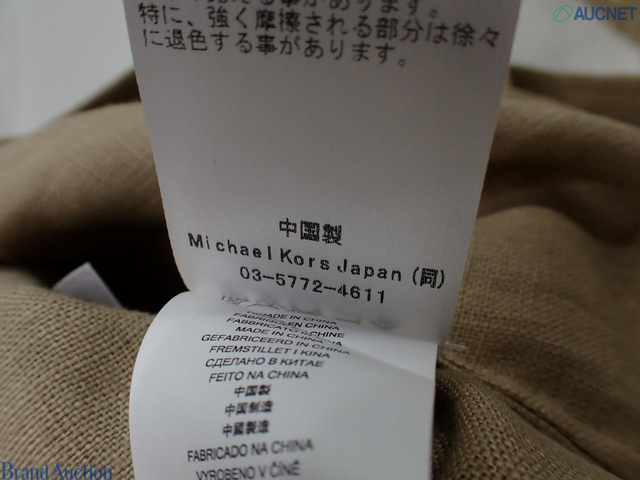 AUCNET
特に、強く摩擦される部分は徐々
に退色する事があります。
中国製
Michael Kors Japan (同)
03-5772-4611
MADE IN CHINA
FABRIQUÉ EN CHINA
FABBRICATO CHINE
MADE IN CHINA
GEFABRICEERD IN CHINA
FREMSTILLET I KINA
СДЕЛАНО В КИТАЕ
FEITO NA CHINA
中国製
中国制造
中國製造
FABRICADO NA CHINA
VYROBENO V ČÍNĚ
Brand Auction